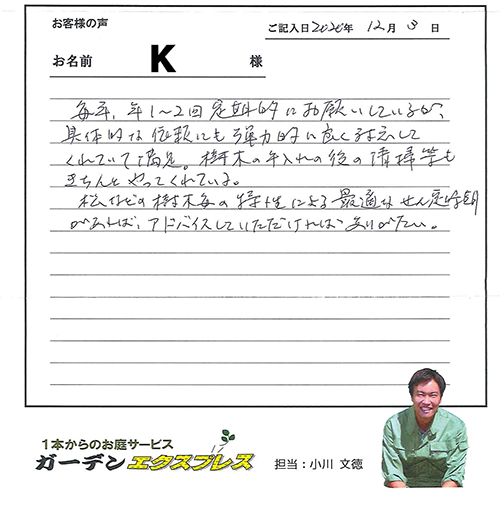 お客様の声
ご記入日2020年 12月 3日
お名前 K 様
毎年、年1〜2回定期的にお願いしているが、
具体的な依頼にも強力的に良く対応して
くれていて満足。樹木の手入れの後の清掃等も
きちんとやってくれている。
松などの樹木毎の特性による最適なせん定時期
があれば、アドバイスしていただければありがたい。
1本からのお庭サービス
ガーデンエクスプレス
担当：小川 文徳